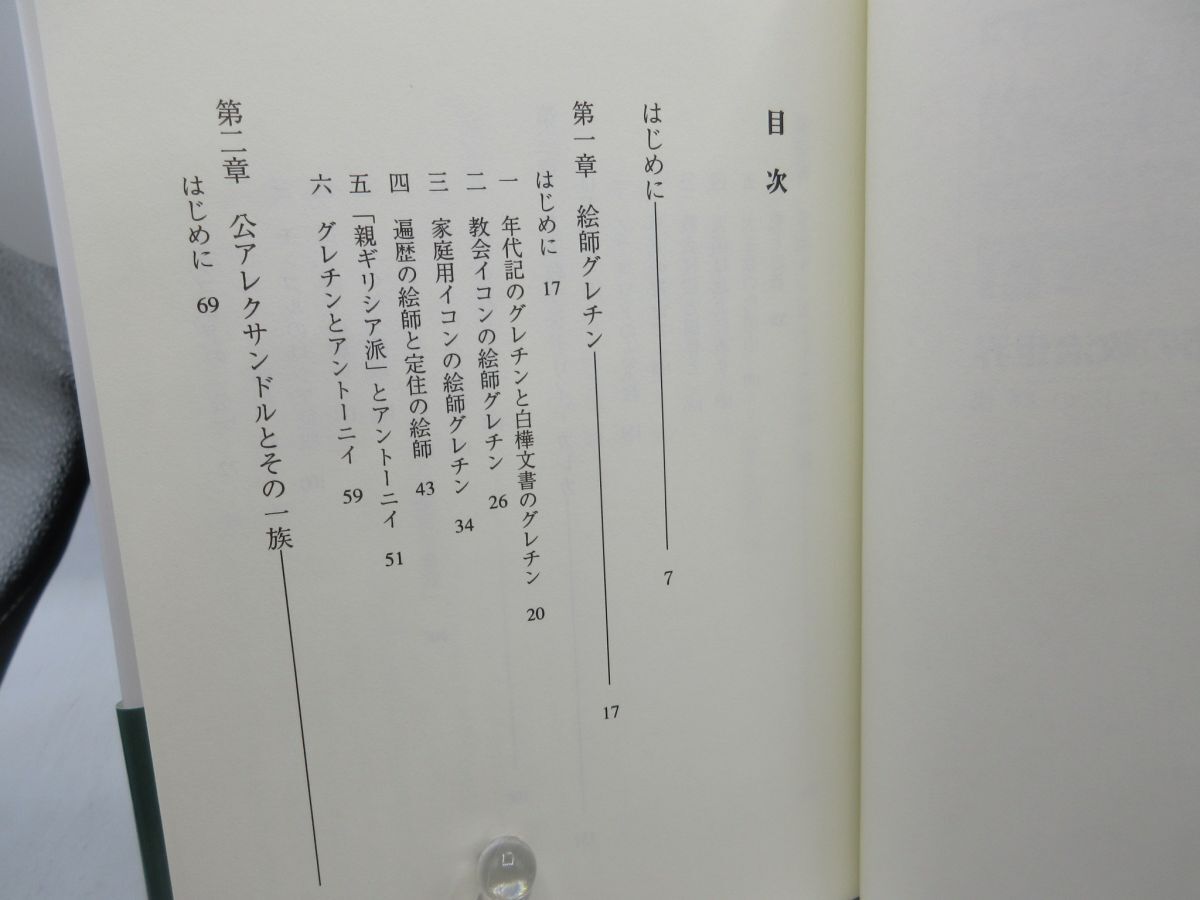 目次
はじめに 7
第一章 絵師グレチン 17
はじめに 17
一 年代記のグレチンと白樺文書のグレチン 20
二 教会イコンの絵師グレチン 26
三 家庭用イコンの絵師グレチン 34
四 遍歴の絵師と定住の絵師 43
五 「親ギリシア派」とアントーニイ 51
六 グレチンとアントーニイ 59
第二章 公アレクサンドルとその一族
はじめに 69